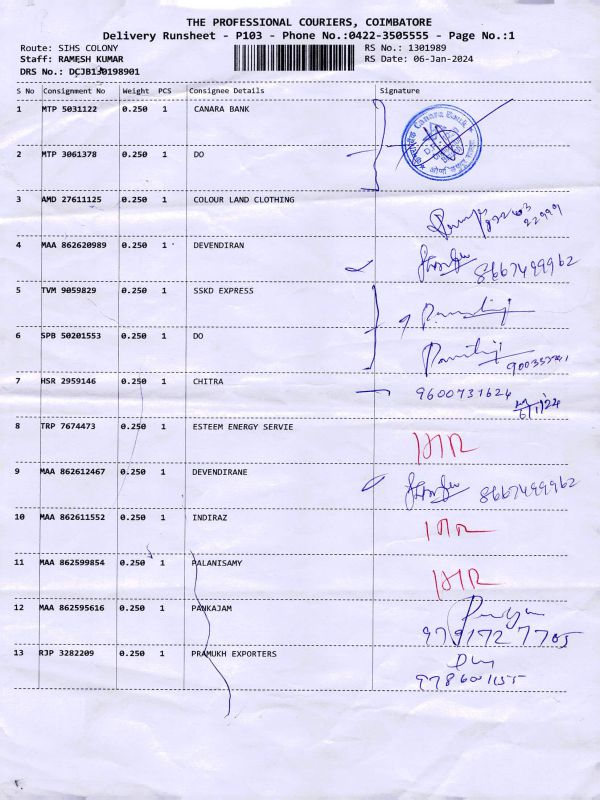 THE PROFESSIONAL COURIERS, COIMBATORE
Delivery Runsheet - P103 - Phone No.:0422-3505555 - Page No.:1
Route: SIHS COLONY RS No.: 1301989
Staff: RAMESH KUMAR RS Date: 06-Jan-2024
DRS No.: DCJB130198901
S No Consignment No Weight PCS Consignee Details Signature
1 MTP 5031122 0.250 1 CANARA BANK
Canara Bank
2 MTP 3061378 0.250 1 DO
3 AMD 27611125 0.250 1 COLOUR LAND CLOTHING
4 MAA 862620989 0.250 1 DEVENDIRAN 8667499962
5 TVM 9059829 0.250 1 SSKD EXPRESS
6 SPB 50201553 0.250 1 DO
7 HSR 2959146 0.250 1 CHITRA 9600731624
6/1/24
8 TRP 7674473 0.250 1 ESTEEM ENERGY SERVIE
9 MAA 862612467 0.250 1 DEVENDIRANE 8667499962
10 MAA 862611552 0.250 1 INDIRAZ
11 MAA 862599854 0.250 1 PALANISAMY
12 MAA 862595616 0.250 1 PANKAJAM
13 RJP 3282209 0.250 1 PRAMUKH EXPORTERS